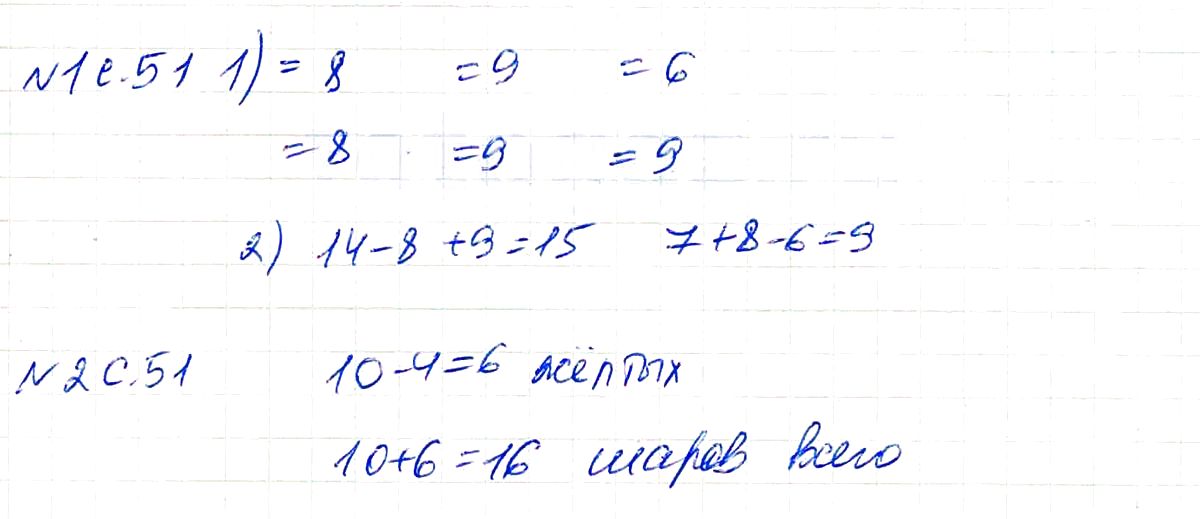 N1 с.51 1) = 8 = 9 = 6
= 8 = 9 = 9
2) 14-8+9=15 7+8-6=9
N2 с.51 10-4=6 жёлтых
10+6=16 шаров всего